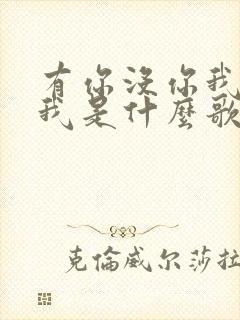 有你没你我
我是什麼歌
克倫威尔莎拉